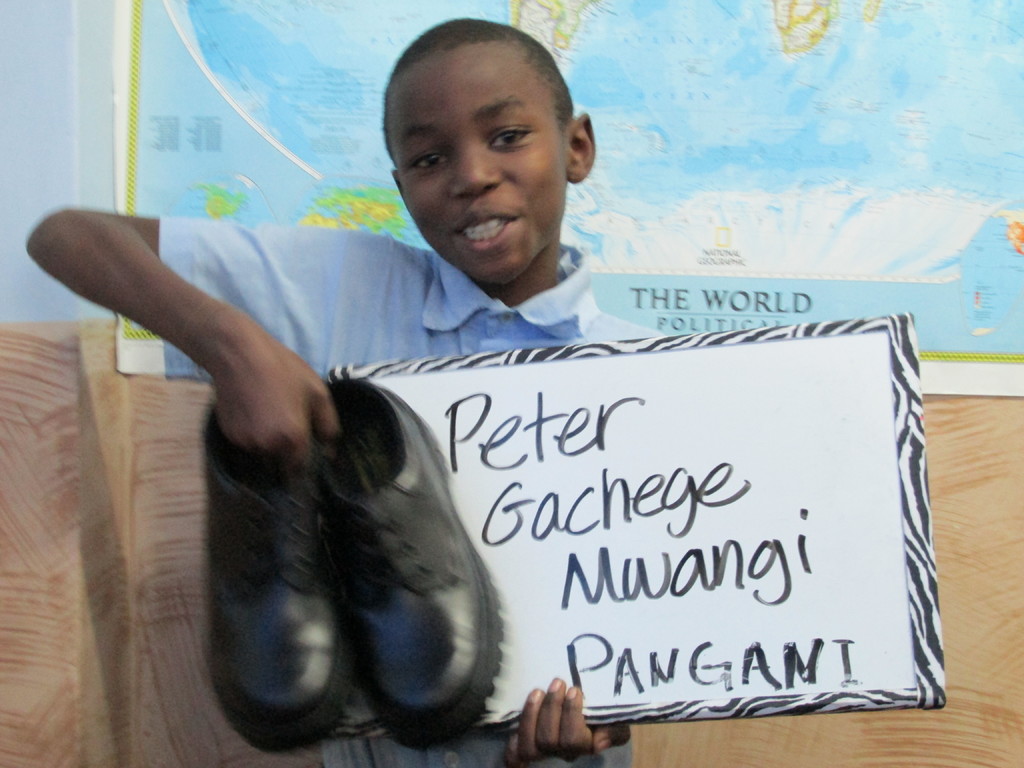 NATIONAL
GEOGRAPHIC
THE WORLD
POLITICAL
Peter
Gachege
Mwangi
PANGANI